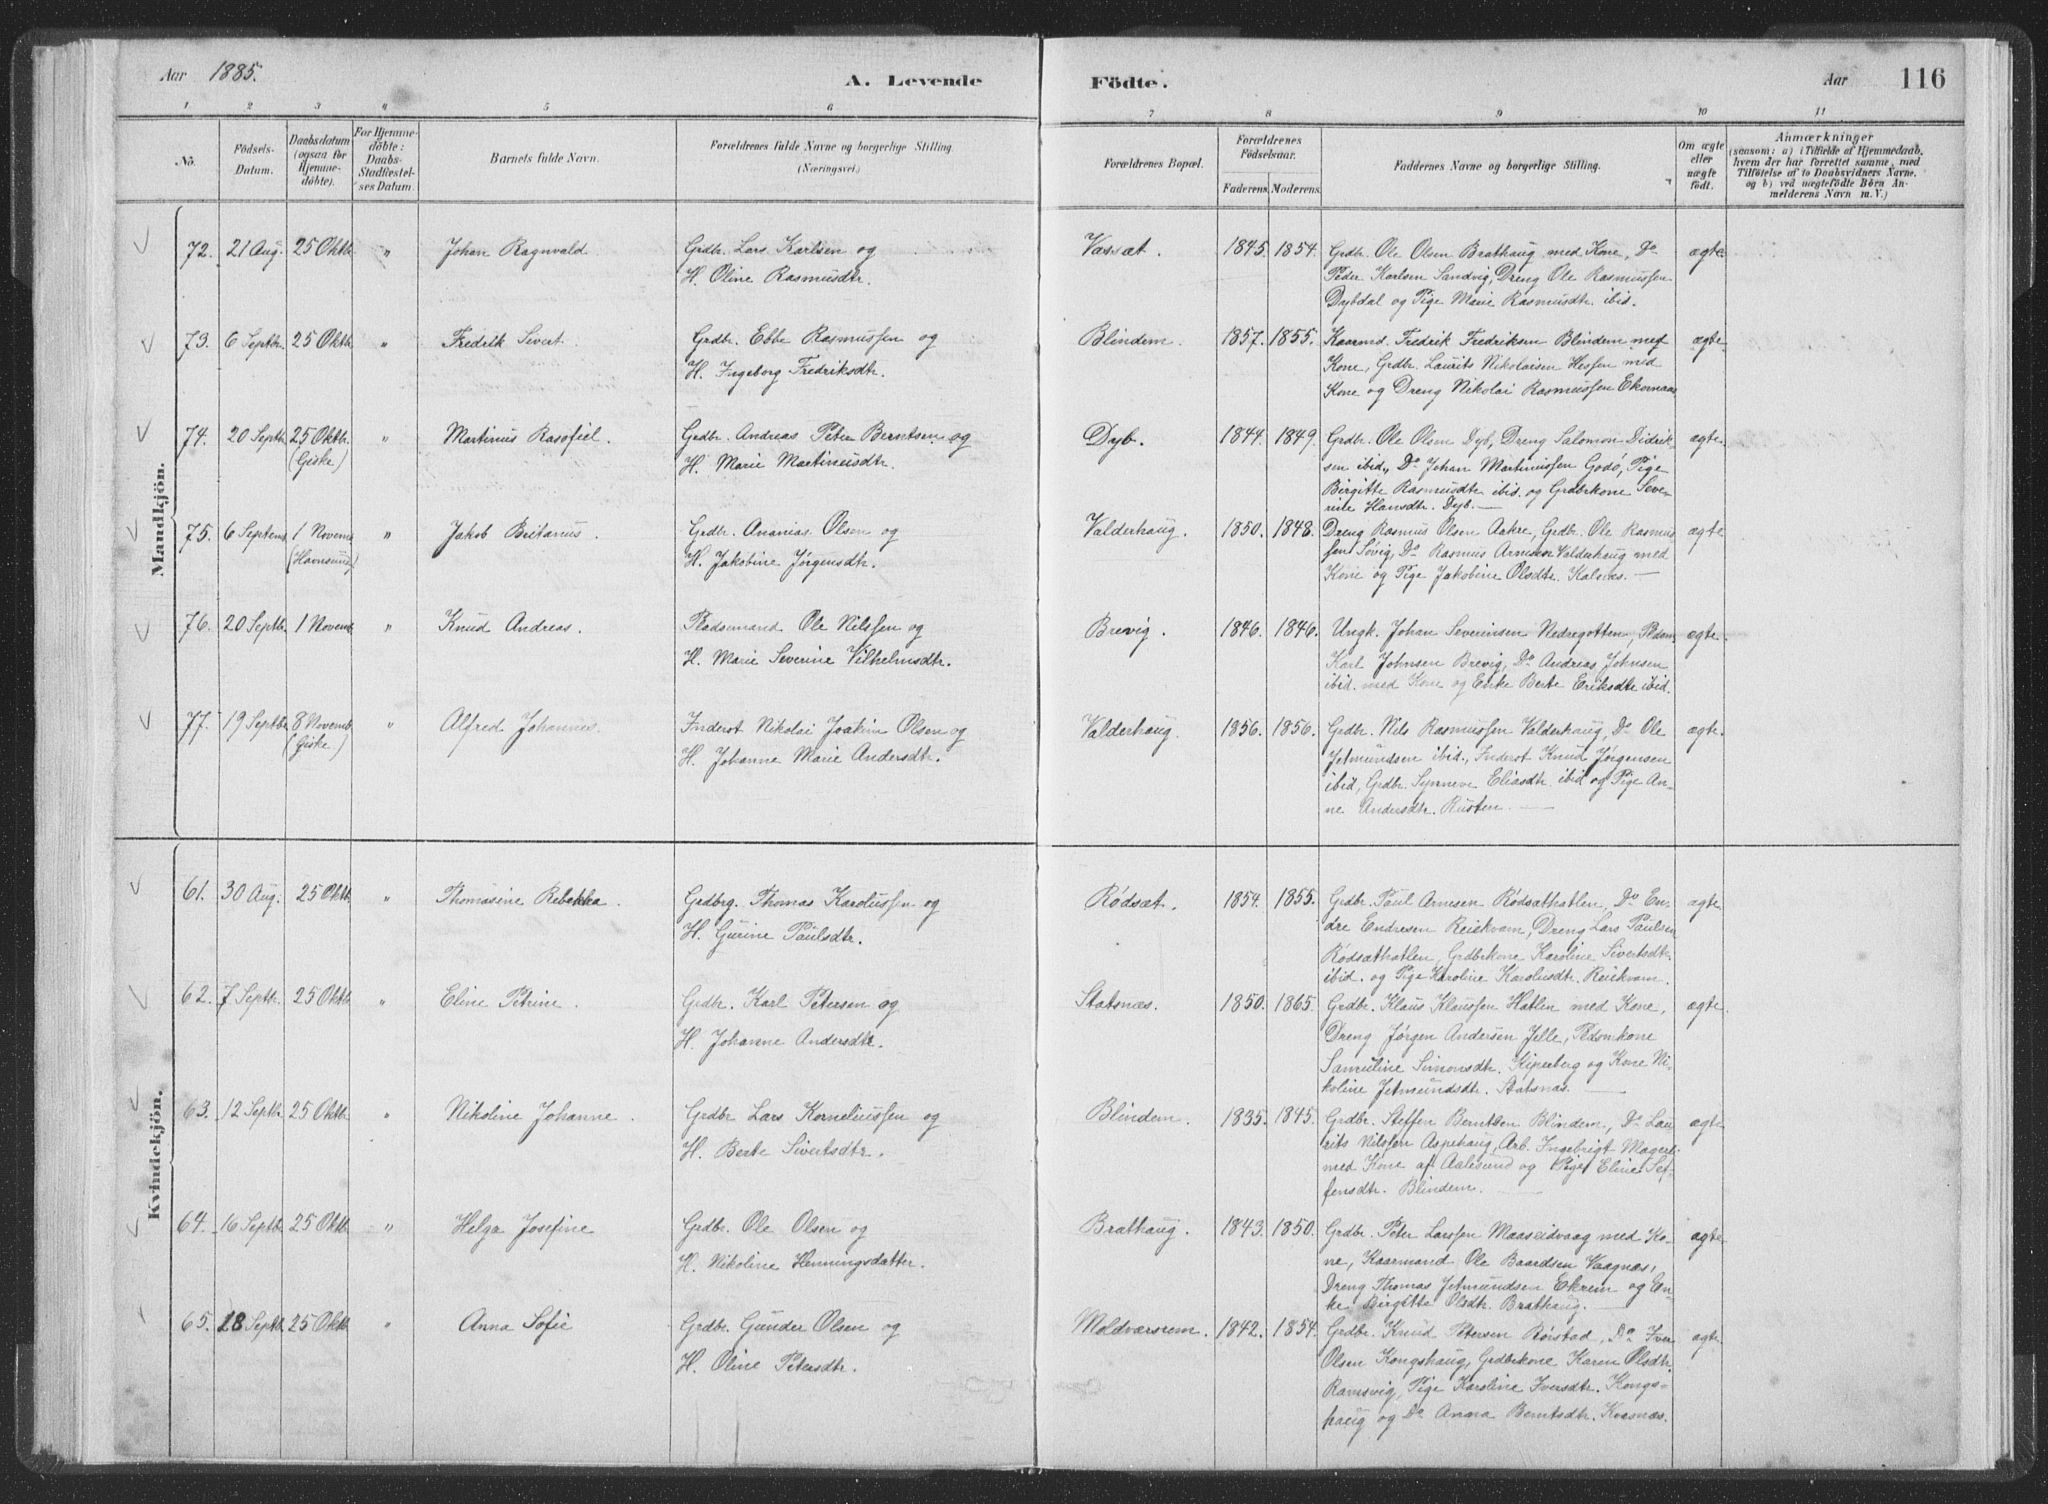 Aar 1885.
A. Levende
Födte.
Aar
116
1 2 3 4 5 6 7 8 9 10 11
No.
Födsels-
Datum.
Daabsdatum
(ogsaa for
Hjemme-
döbte).
For Hjemme-
döbte:
Daabs-
Stadfæstel-
ses Datum.
Barnets fulde Navn.
Forældrenes fulde Navne og borgerlige Stilling.
(Næringsvei.)
Forældrenes Bopæl.
Forældrenes
Födselsaar.
Faderens. Moderens.
Faddernes Navne og borgerlige Stilling.
Om ægte
eller
uægte
födt.
Anmærkninger
(saasom: a) i Tilfælde af Hjemmedaab,
hvem der har forrettet samme, med
Tilföielse af to Daabsvidners Navne,
og b) ved uægtefödte Börn An-
melderens Navn m. V.)
Mandkjön.
72. 21 Aug. 25 Oktb. " Johan Ragnvald. Grdbr. Lars Karlsen og
H. Oline Rasmusdtr.
Vassæt. 1845. 1854. Grdbr. Ole Olsen Brathaug med Kone, Do
Peder Karlsen Sandvig, Dreng Ole Rasmussen
Dybdal og Pige Marie Rasmusdtr. ibid.
ægte
73. 6 Septbr. 25 Oktb. " Fredrik Sivert. Grdbr. Ebbe Rasmussen og
H. Ingeborg Fredriksdtr.
Blindem. 1857. 1855. Kaarmd. Fredrik Fredriksen Blindem med
Kone, Grdbr. Laurits Nikolaisen Hessen med
Kone og Dreng Nikolai Rasmussen Ekornaas
ægte
74. 20 Septb. 25 Oktbr. (Giske) " Martinus Rasofiel. Grdbr. Andreas Peter Berntsen og
H. Marie Martinusdtr.
Dyb. 1844. 1849. Grdbr. Ole Olsen Dyb, Dreng Salomon Didrik-
sen ibid., Do Johan Martinussen Godö, Pige
Birgitte Rasmusdtr ibid. og Grdbrkone Seve-
rine Hansdtr. Dyb.
ægte
75. 6 Septemb. 1 Novemb. (Havnsund) " Jakob Britanus. Grdbr. Ananias Olsen og
H. Jakobine Jørgensdtr.
Valderhaug. 1850. 1848. Dreng Rasmus Olsen Aakre, Grdbr. Ole Rasmus-
sen Søvig, Do Rasmus Arnesen Valderhaug med
Kone og Pige Jakobine Olsdtr. Kalvæs.
ægte
76. 20 Septb. 1 Novemb. " Knud Andreas. Pladsemand Ole Nilssen og
H. Marie Severine Vilhelmsdtr.
Brevig. 1846. 1846. Ungk. Johan Severinsen Nedregotten, Pldsm.
Karl Johnsen Brevig, Do Andreas Johnsen
ibid. med Kone og Enke Berte Eriksdtr ibid.
ægte
77. 19 Septbr. 8 Novemb. (Giske) " Alfred Johannes. Inderst Nikolai Joakim Olsen og
H. Johanne Marie Andersdtr.
Valderhaug. 1856. 1856. Grdbr. Nils Rasmussen Valderhaug, Do Ole
Jetmundsen ibid., Inderst Knud Jørgensen
ibid, Grdbr. Synneve Eliasdtr ibid og Pige An-
ne Andersdtr. Rusten.
ægte
Kvindekjön.
61. 30 Aug. 25 Oktb. " Thomasine Rebekka. Grdbrg. Thomas Karolussen og
H. Gurine Paulsdtr.
Rödsæt. 1854. 1855. Grdbr. Paul Arnesen Rödsæthatlen, Do En-
dre Endresen Reiekvam, Dreng Lars Paulsen
Rödsæthatlen, Grdbrkone Karoline Sivertsdtr.
ibid. og Pige Karoline Karolusdtr. Reiekvam.
ægte
62. 7 Septb. 25 Oktb. " Eline Petrine. Grdbr. Karl Petersen og
H. Johanne Andersdtr.
Statsnæs. 1850. 1865. Grdbr. Klaus Klaussen Hatlen med Kone,
Dreng Jørgen Andersen Jelle, Pldsmkone
Samuline Simonsdtr. Kiperberg og Kone Ni-
koline Jetmundsdtr. Statsnæs.
ægte.
63. 12 Septb. 25 Oktb. " Nikoline Johanne. Grdbr. Lars Korneliussen og
H. Berte Sivertsdtr.
Blindem. 1835. 1845. Grdbr. Steffen Berntsen Blindem, Do Lau-
rits Nilssen Aspehaug, Arb. Ingebrigt Mageli
med Kone af Aalesund og Pige Eline Stef-
fensdtr. Blindem.
ægte
64. 16 Septb. 25 Oktb. " Helga Josefine Grdbr. Ole Olsen og
H. Nikoline Henningsdatter.
Brathaug. 1843. 1850. Grdbr. Peter Larssen Maaseidvaag med Ko-
ne, Kaarmand Ole Baardsen Vaagnæs,
Dreng Thomas Jetmundsen Ekrem og En-
ke Birgitte Olsdtr. Brathaug.
ægte
65. 28 Septb. 25 Oktb. " Anna Sofie Grdbr. Gunder Olsen og
H. Oline Petersdtr.
Moldværsrem. 1842. 1854. Grdbr. Knud Petersen Rörstad, Do Iver
Olsen Kongshaug, Grdbrkone Karen Olsdtr.
Ramsvig, Pige Karoline Iversdtr. Kongs-
haug og Do Anna Berntsdtr. Kvasnæs.
ægte